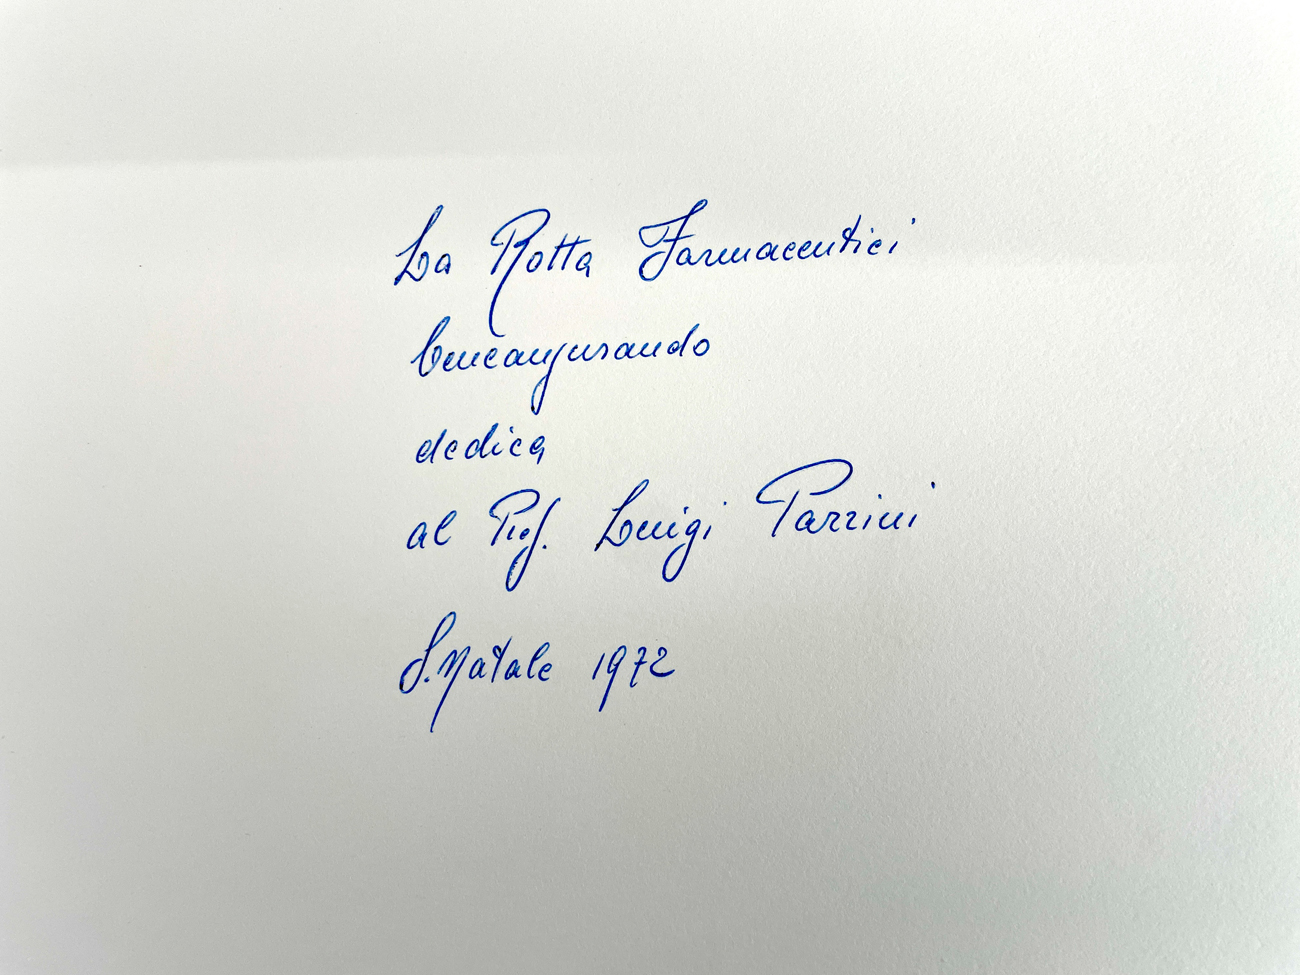 La Rotta Farmaceutici
beneaugurando
dedica
al Prof. Luigi Parrini
S. Natale 1972